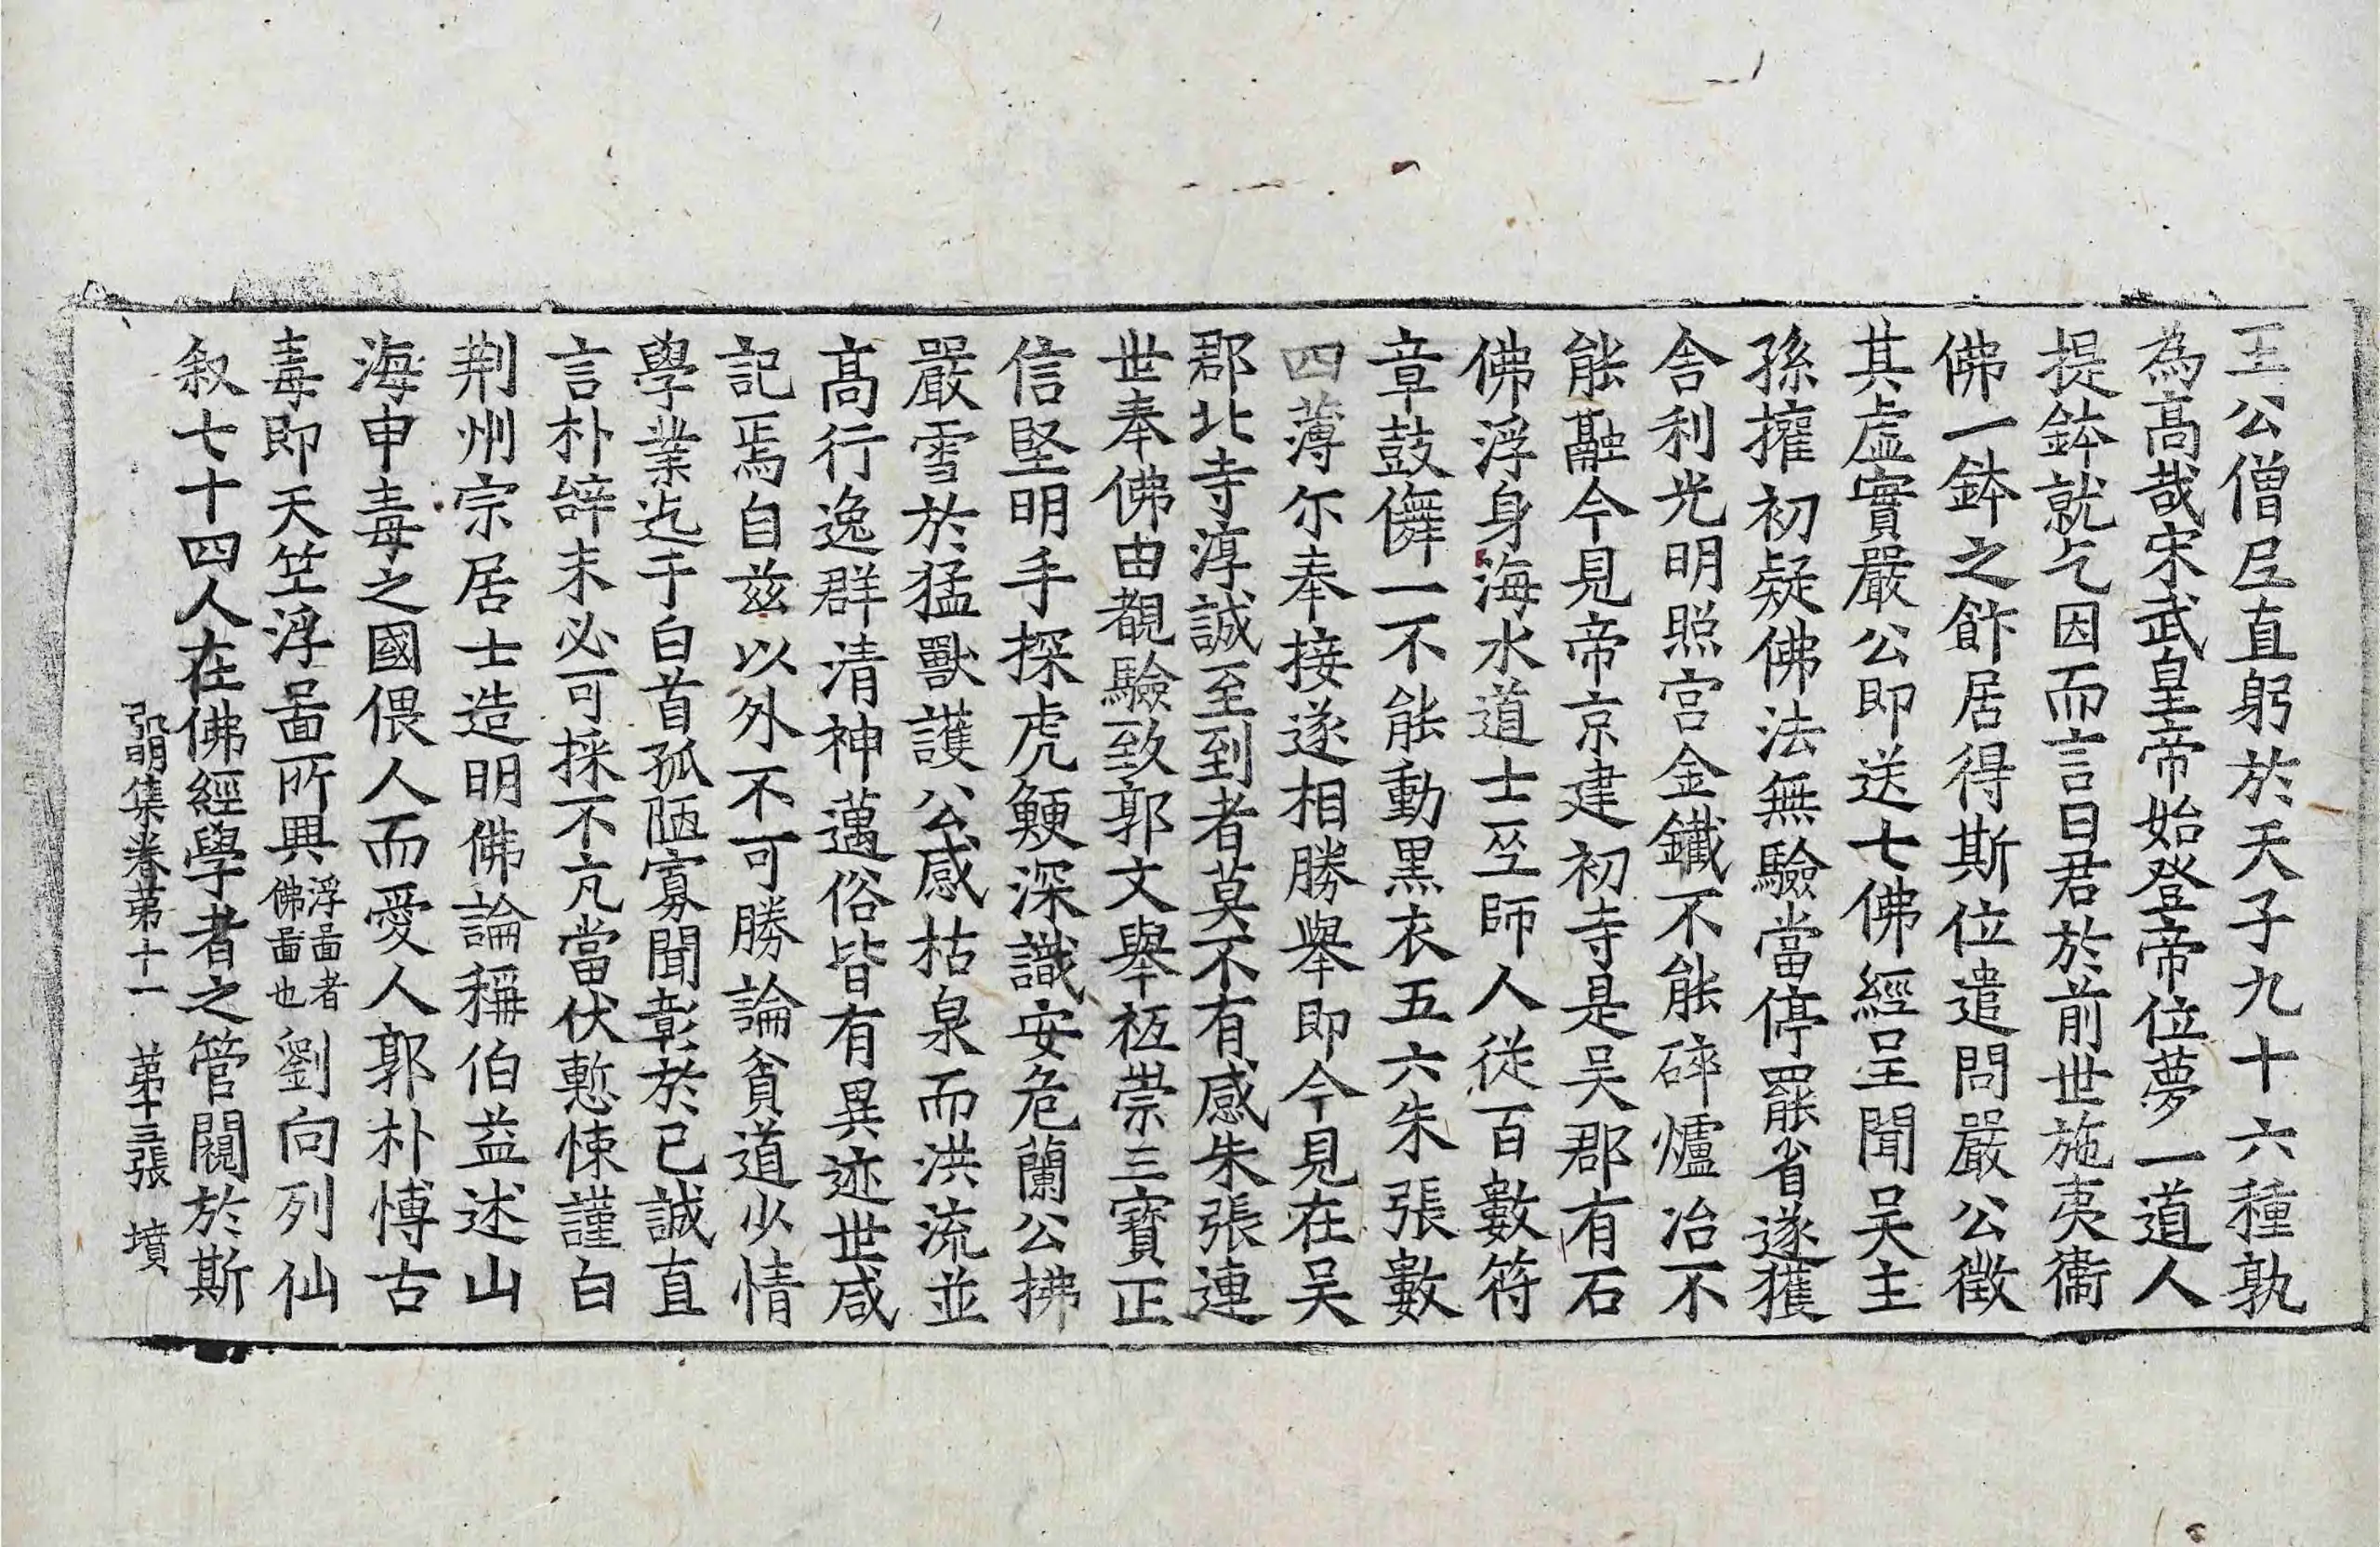 王公僧尼直躬於天子九十六種孰
為髙哉宋武皇帝始登帝位夢一道人
提鉢就乞因而言曰君於前世施夷衞
佛一鉢之飰居得斯位遣問嚴公徵
其虛實嚴公即送七佛經呈聞吴主
孫㩲初疑佛法無驗當停罷省遂獲
舍利光明照宫金鐵不能碎爐冶不
能融今見帝京建初寺是吴郡有石
佛浮身海水道士巫師人從百數符
章鼓儛一不能動黒衣五六朱張數
四薄尔奉接遂相勝舉即今見在吴
郡北寺淳誠至到者莫不有感朱張連
世奉佛由覩驗致郭文舉祗崇三寶正
信堅明手探虎鯁深識安危蘭公拂
嚴雪於猛獸護公感枯泉而洪流並
髙行逸群清神邁俗皆有異迹世咸
記焉自兹以外不可勝論貧道少情
學業迄乎白首孤陋寡聞彰於已誠直
言朴辝末必可採不亢當伏慙悚謹白
荆州宗居士造明佛論稱伯益述山
海申毒之國偎人而愛人郭朴愽古
毒即天竺浮啚所興浮啚者佛啚也劉向列仙
叙七十四人在佛經學者之管閱於斯
弘明集卷第十一 第十三張 墳